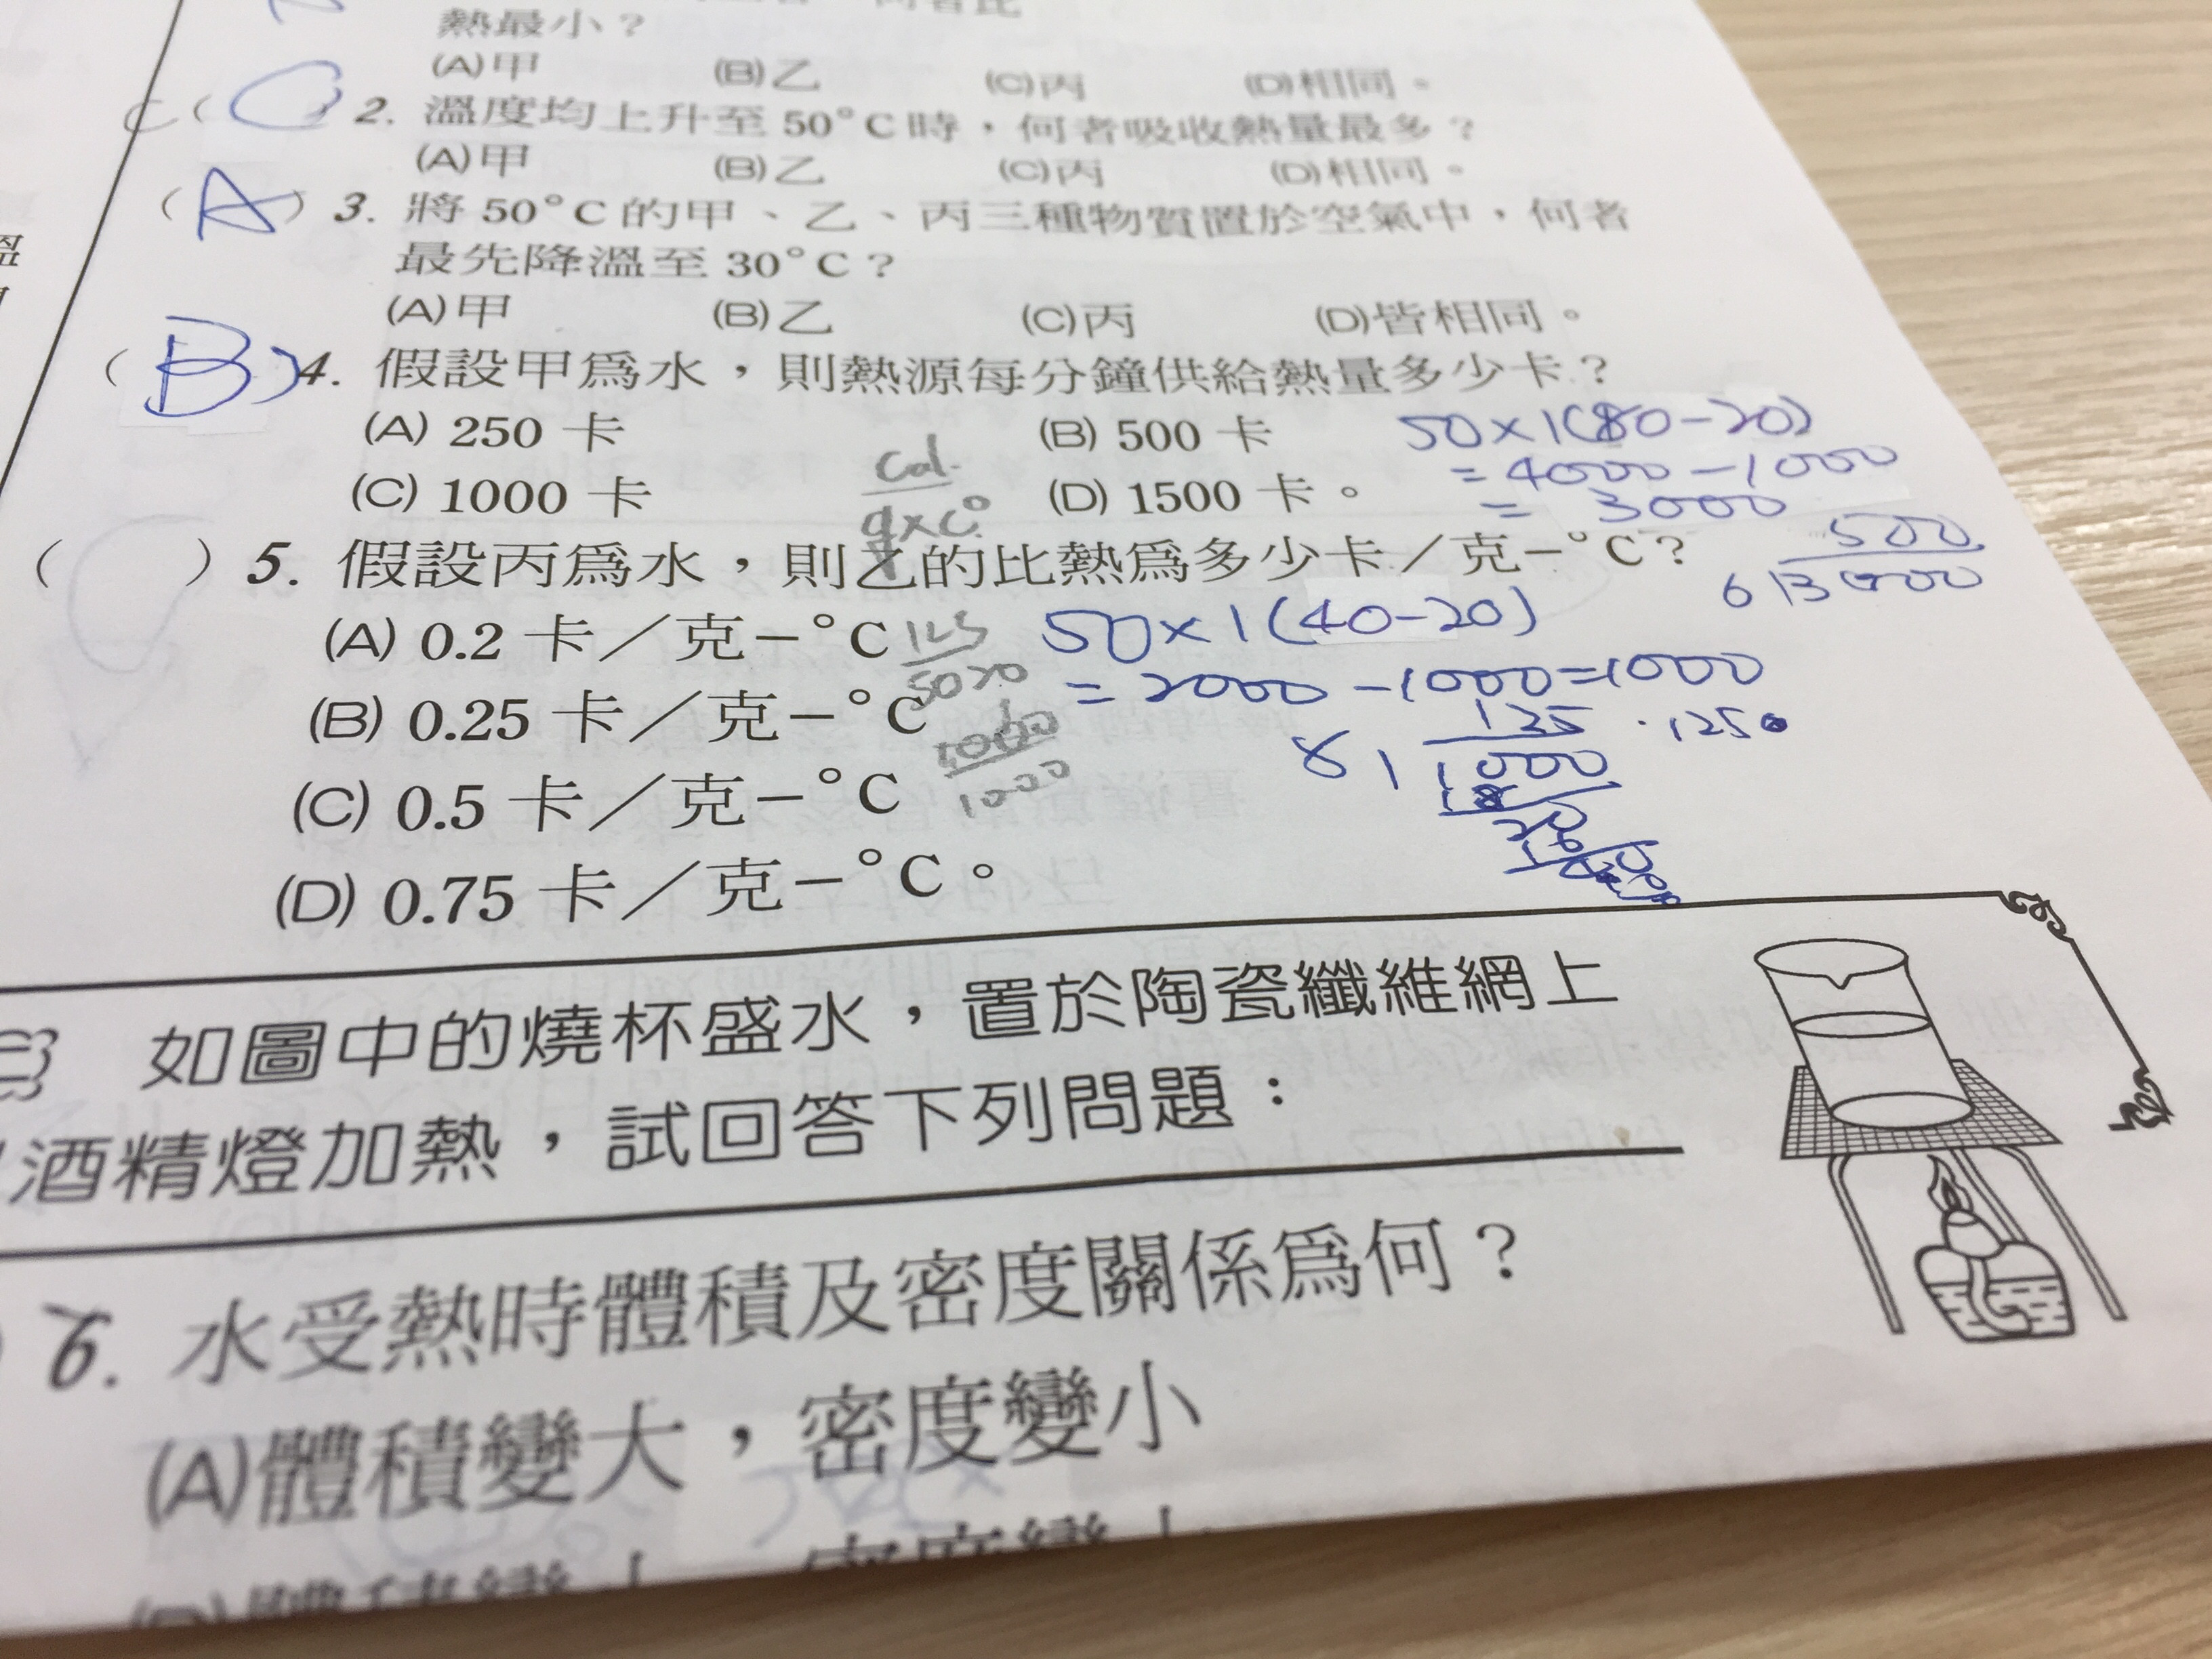 熱最小？
(A)甲 (B)乙 (C)丙 (D)相同。
C ( C ) 2. 溫度均上升至 50°C 時，何者吸收熱量最多？
(A)甲 (B)乙 (C)丙 (D)相同。
( A ) 3. 將 50°C 的甲、乙、丙三種物質置於空氣中，何者
最先降溫至 30°C？
(A)甲 (B)乙 (C)丙 (D)皆相同。
( B ) 4. 假設甲爲水，則熱源每分鐘供給熱量多少卡？
(A) 250 卡 (B) 500 卡
50×1(80-20)
= 4000 - 1000
= 3000
(C) 1000 卡 (D) 1500 卡。
cal.
g×C°
500
6 3000
( ) 5. 假設丙爲水，則乙的比熱爲多少卡／克－°C？
(A) 0.2 卡／克－°C
125
50×1(40-20)
= 2000 - 1000 = 1000
(B) 0.25 卡／克－°C
125 .125
8 1000
1000
(C) 0.5 卡／克－°C
(D) 0.75 卡／克－°C。
如圖中的燒杯盛水，置於陶瓷纖維網上
酒精燈加熱，試回答下列問題：
6. 水受熱時體積及密度關係爲何？
(A)體積變大，密度變小